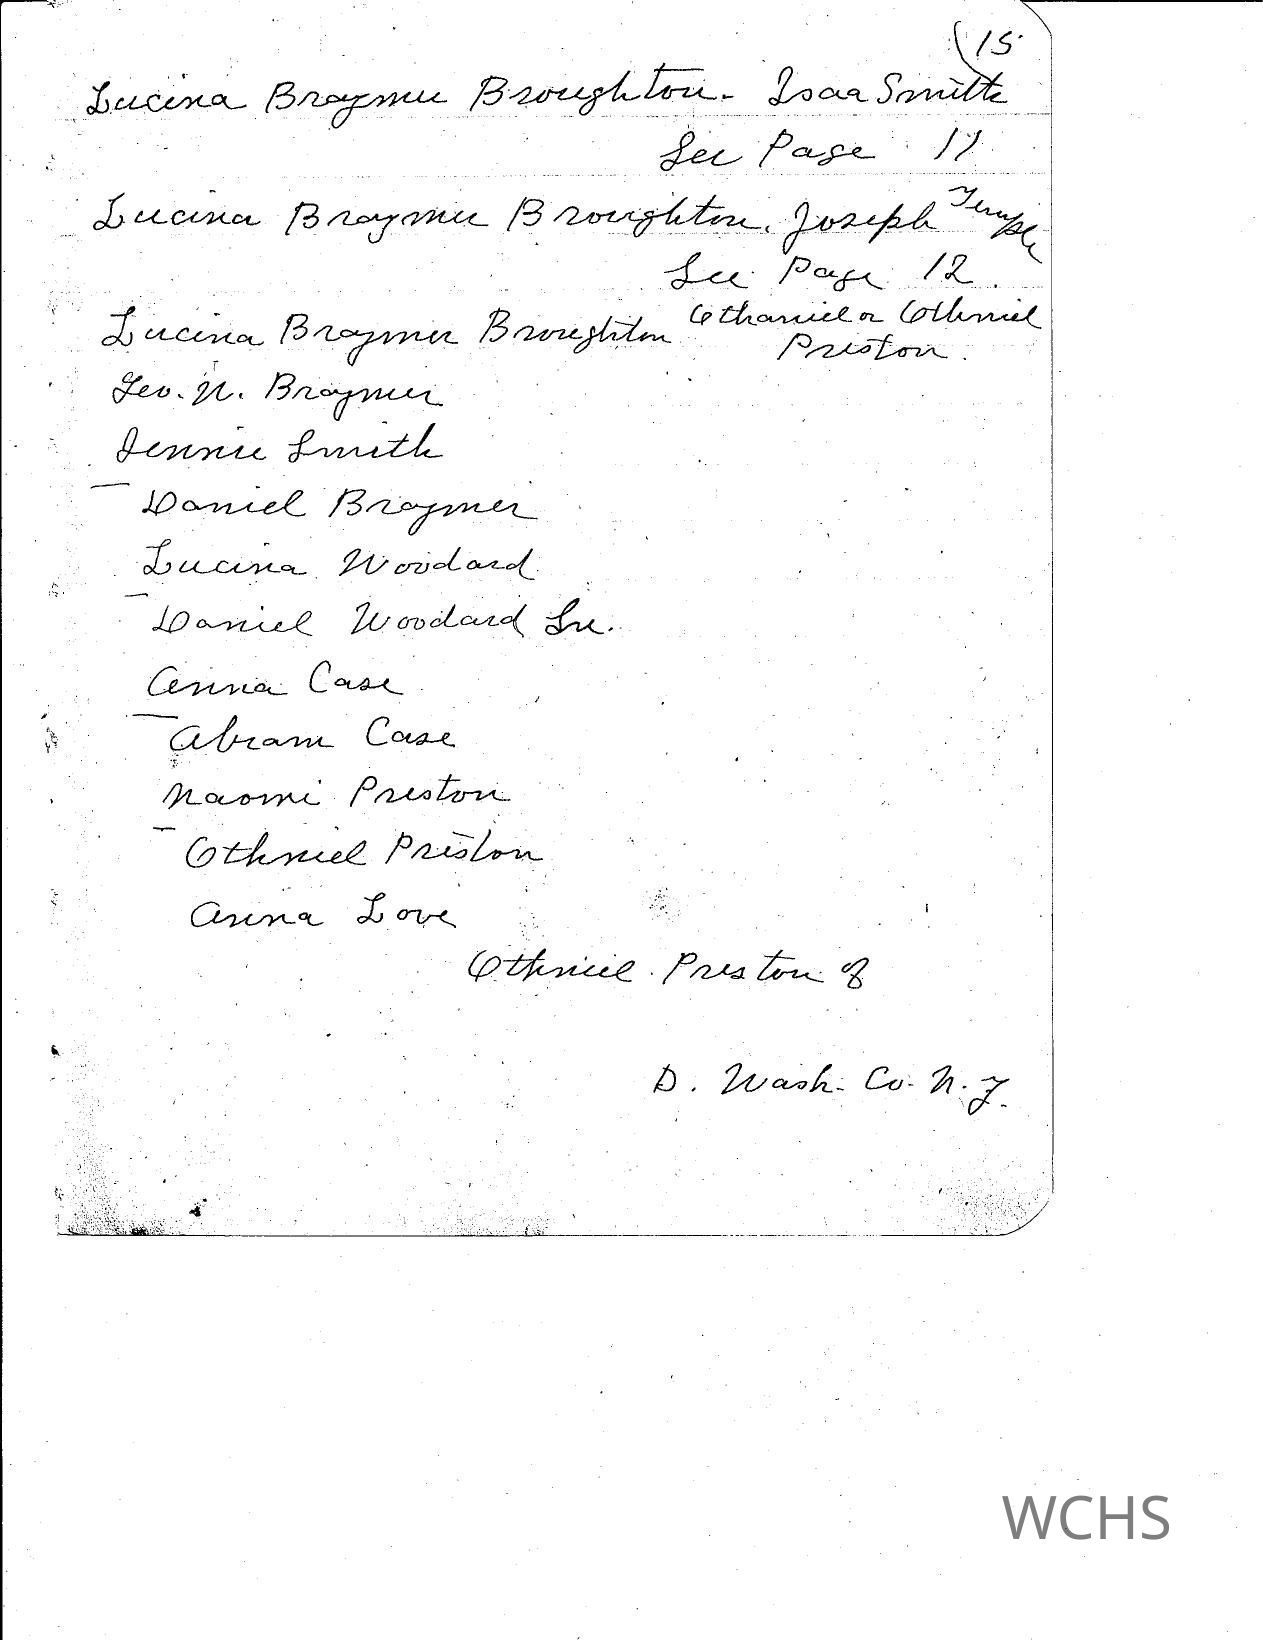 (15
Lucina Braymer Broughton. Isaa Smith
See Page 11
Lucina Braymer Broughton. Joseph Temple
See Page 12
Lucina Braymer Broughton Othaniel or Othniel
Preston.
Geo. N. Braymer
Jennie Smith
Daniel Braymer
Lucina Woodard
Daniel Woodard Sr.
Anna Case
Abram Case
Naomi Preston
Othniel Preston
Anna Love
Othniel Preston of
D. Wash. Co. N.Y.
WCHS